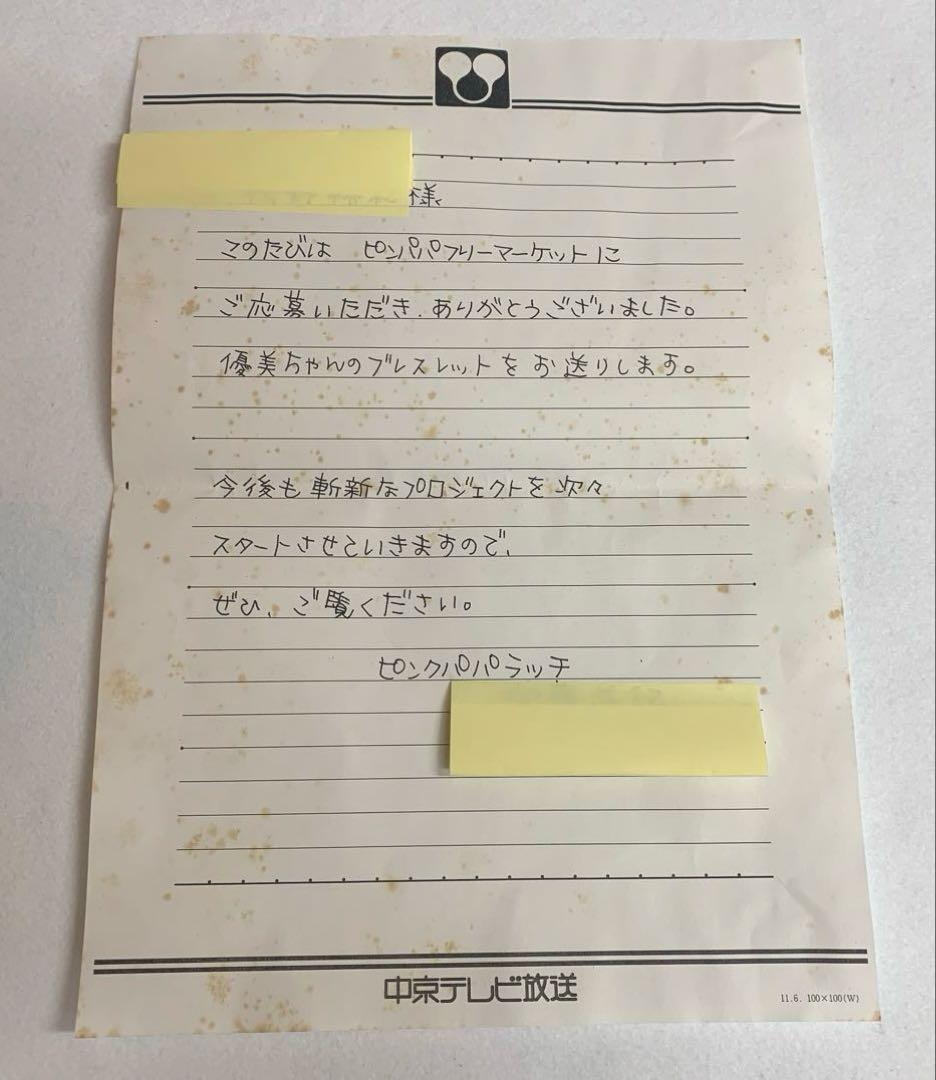 様
このたびは ピンパパフリーマーケットに
ご応募いただき、ありがとうございました。
優美ちゃんのブレスレットをお送りします。
今後も斬新なプロジェクトを次々
スタートさせていきますので、
ぜひ、ご覧ください。
ピンクパパラッチ
中京テレビ放送
11.6. 100×100(W)